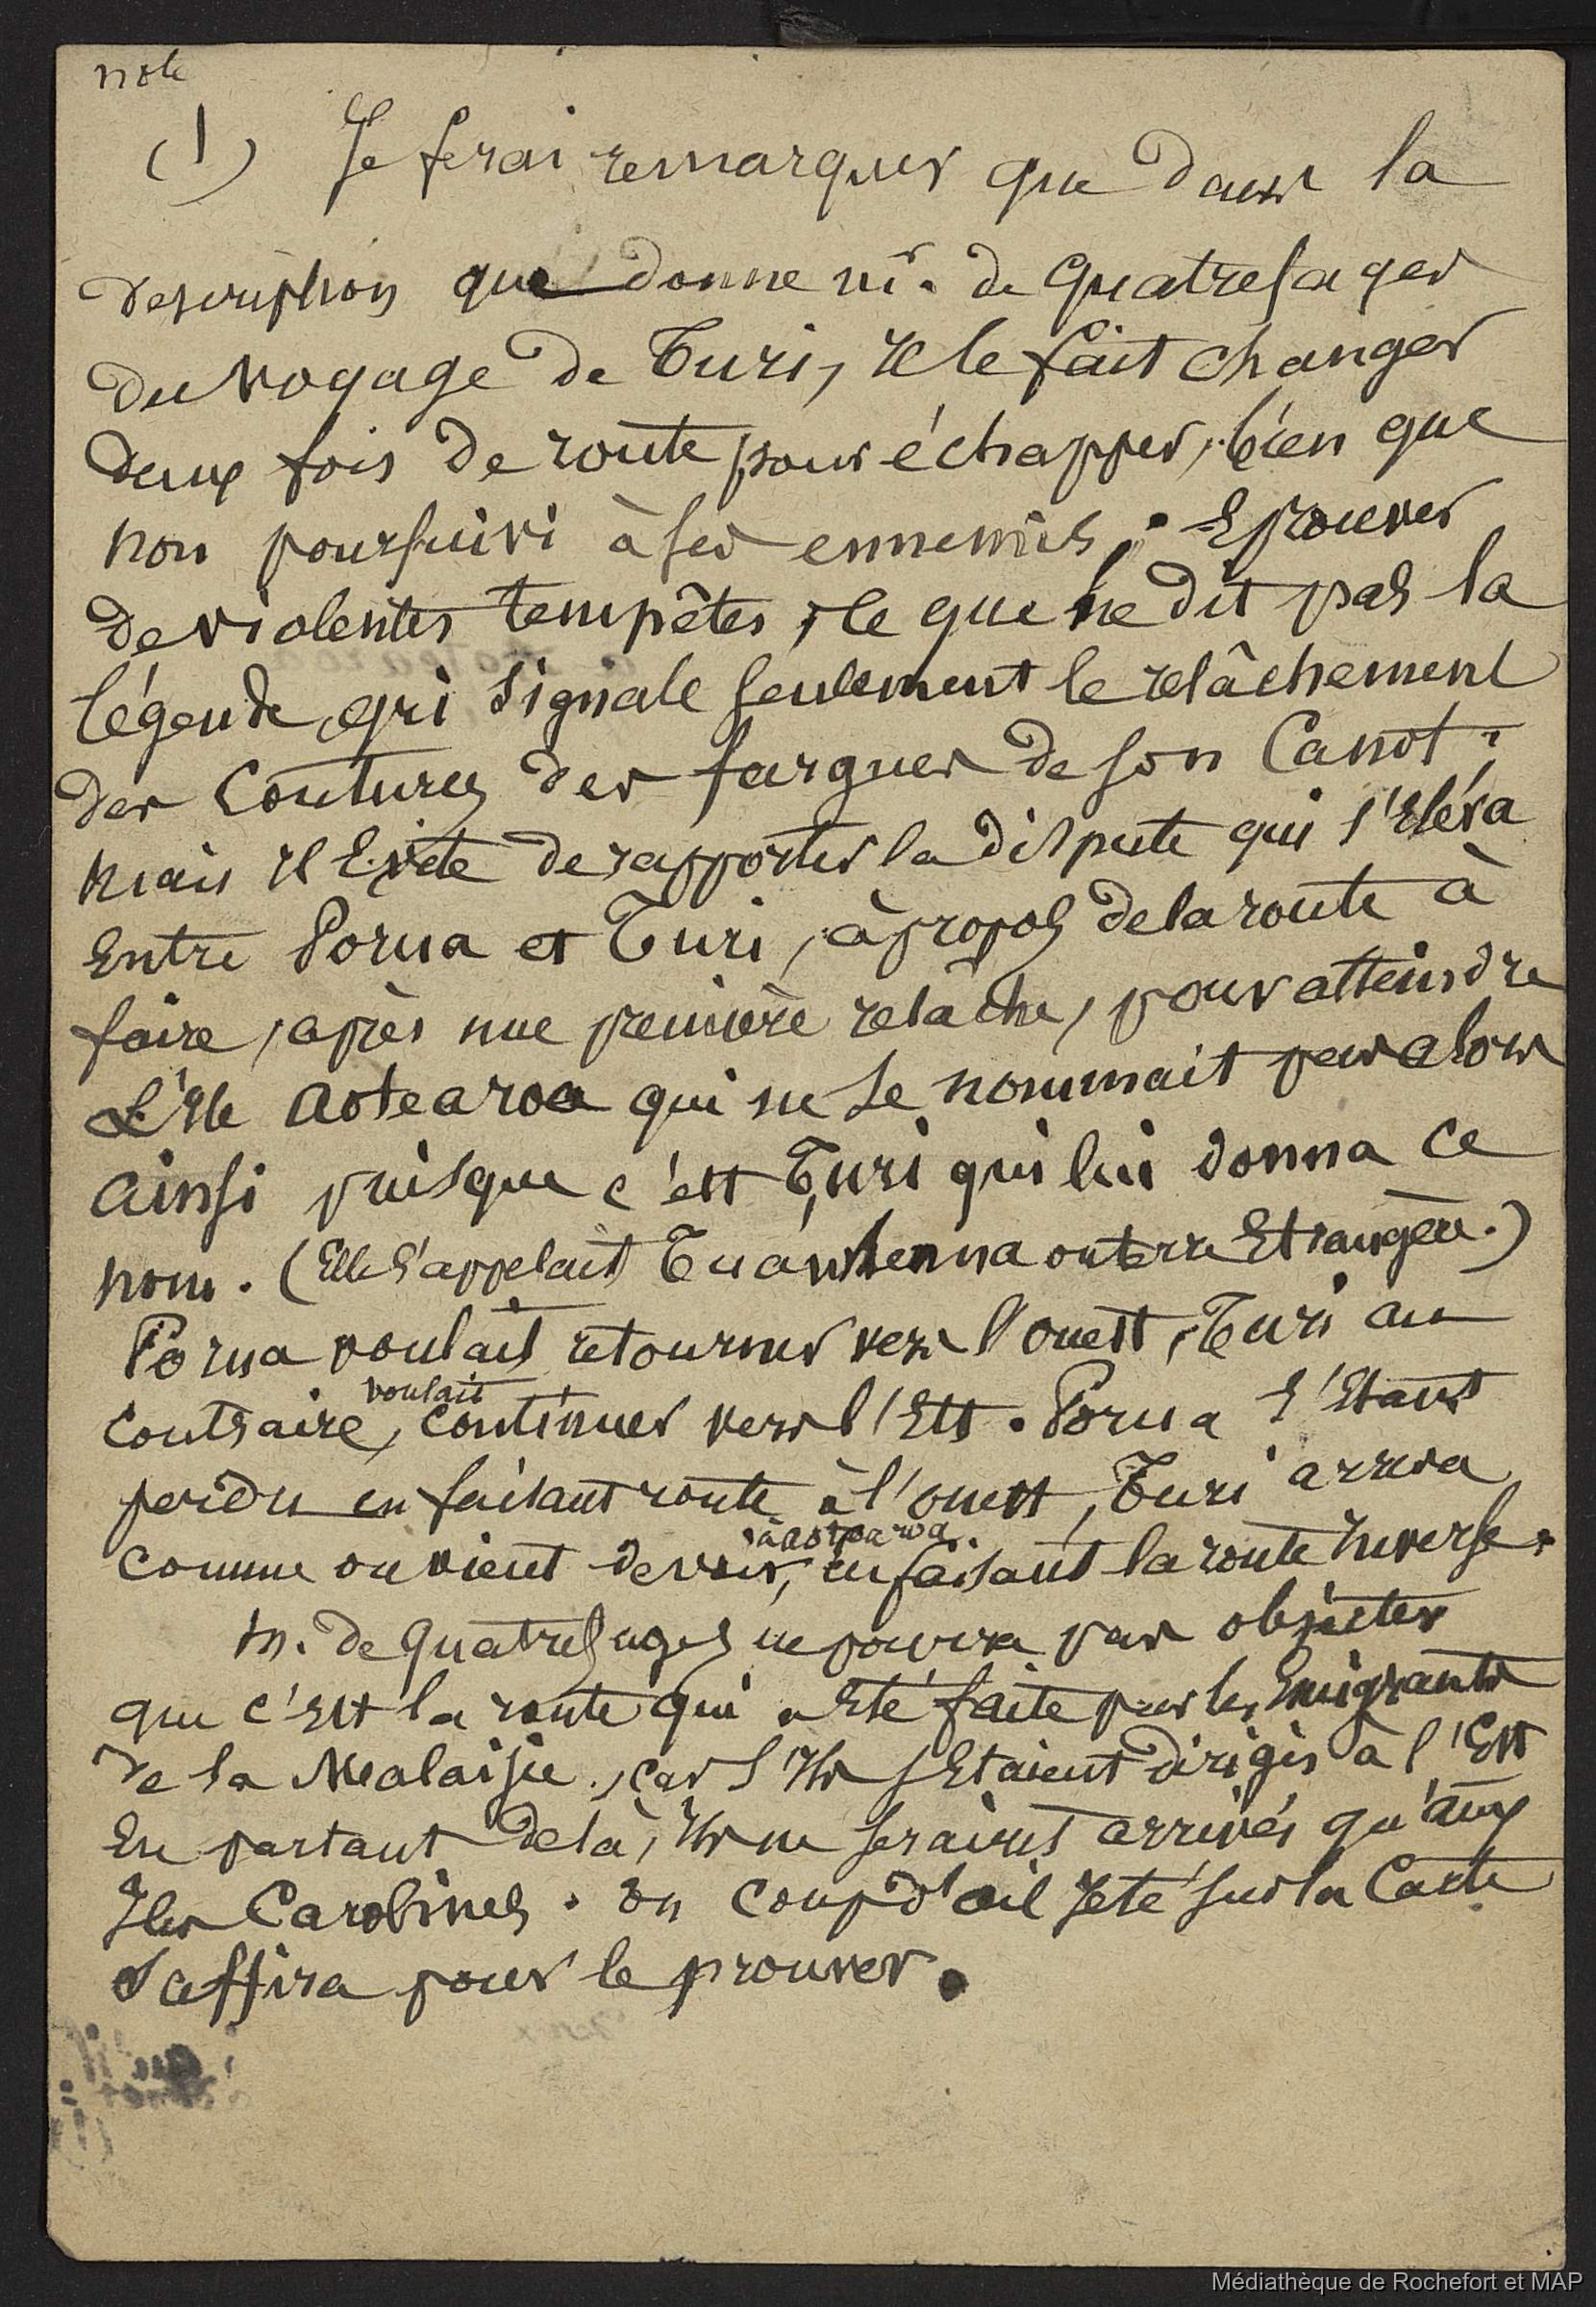 note
(1) Je ferai remarquer que dans la
description que donne M. de Quatrefages
du voyage de Turi, il le fait changer
deux fois de route pour échapper, bien que
non poursuivi à ses ennemis ; Eprouver
de violentes tempêtes, ce que ne dit pas la
légende, qui signale seulement le relâchement
des coutures des fargues de son Canot ;
mais il Evite de rapporter la dispute qui s'Eléva
Entre Porua et Turi, à propos de la route à
faire, après une première relâche, pour atteindre
L'Ile Aotearoa qui ne se nommait pas alors
Ainsi puisque c'est Turi qui lui donna ce
nom. (Elle s'appelait ou terre Etrangère.)
Porua voulait retourner vers l'ouest, Turi au
contraire, voulait continuer vers l'Est. Porua s'Etant
perdu en faisant route à l'ouest, Turi arriva
comme on vient de voir, à Aotearoa, en faisant la route Inverse.
M. de Quatrefages ne pourra pas objecter
que c'Est la route qui a Eté faite par les Emigrants
de la Malaisie, car s'Ils s'Etaient dirigés à l'Est
En partant de là, Ils ne seraient arrivés qu'aux
Iles Carolines. Un coup d'œil Jeté sur la Carte
Suffira pour le prouver.
Médiathèque de Rochefort et MAP